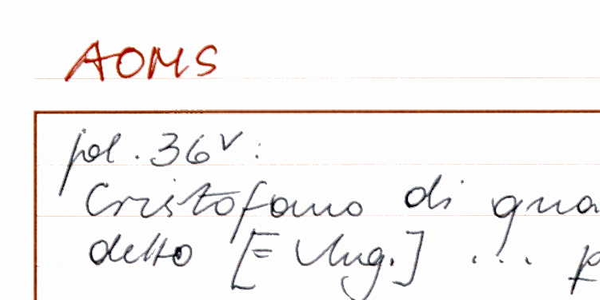 AOMS
fol. 36v:
Cristofano di
detto [= Ung.] ...